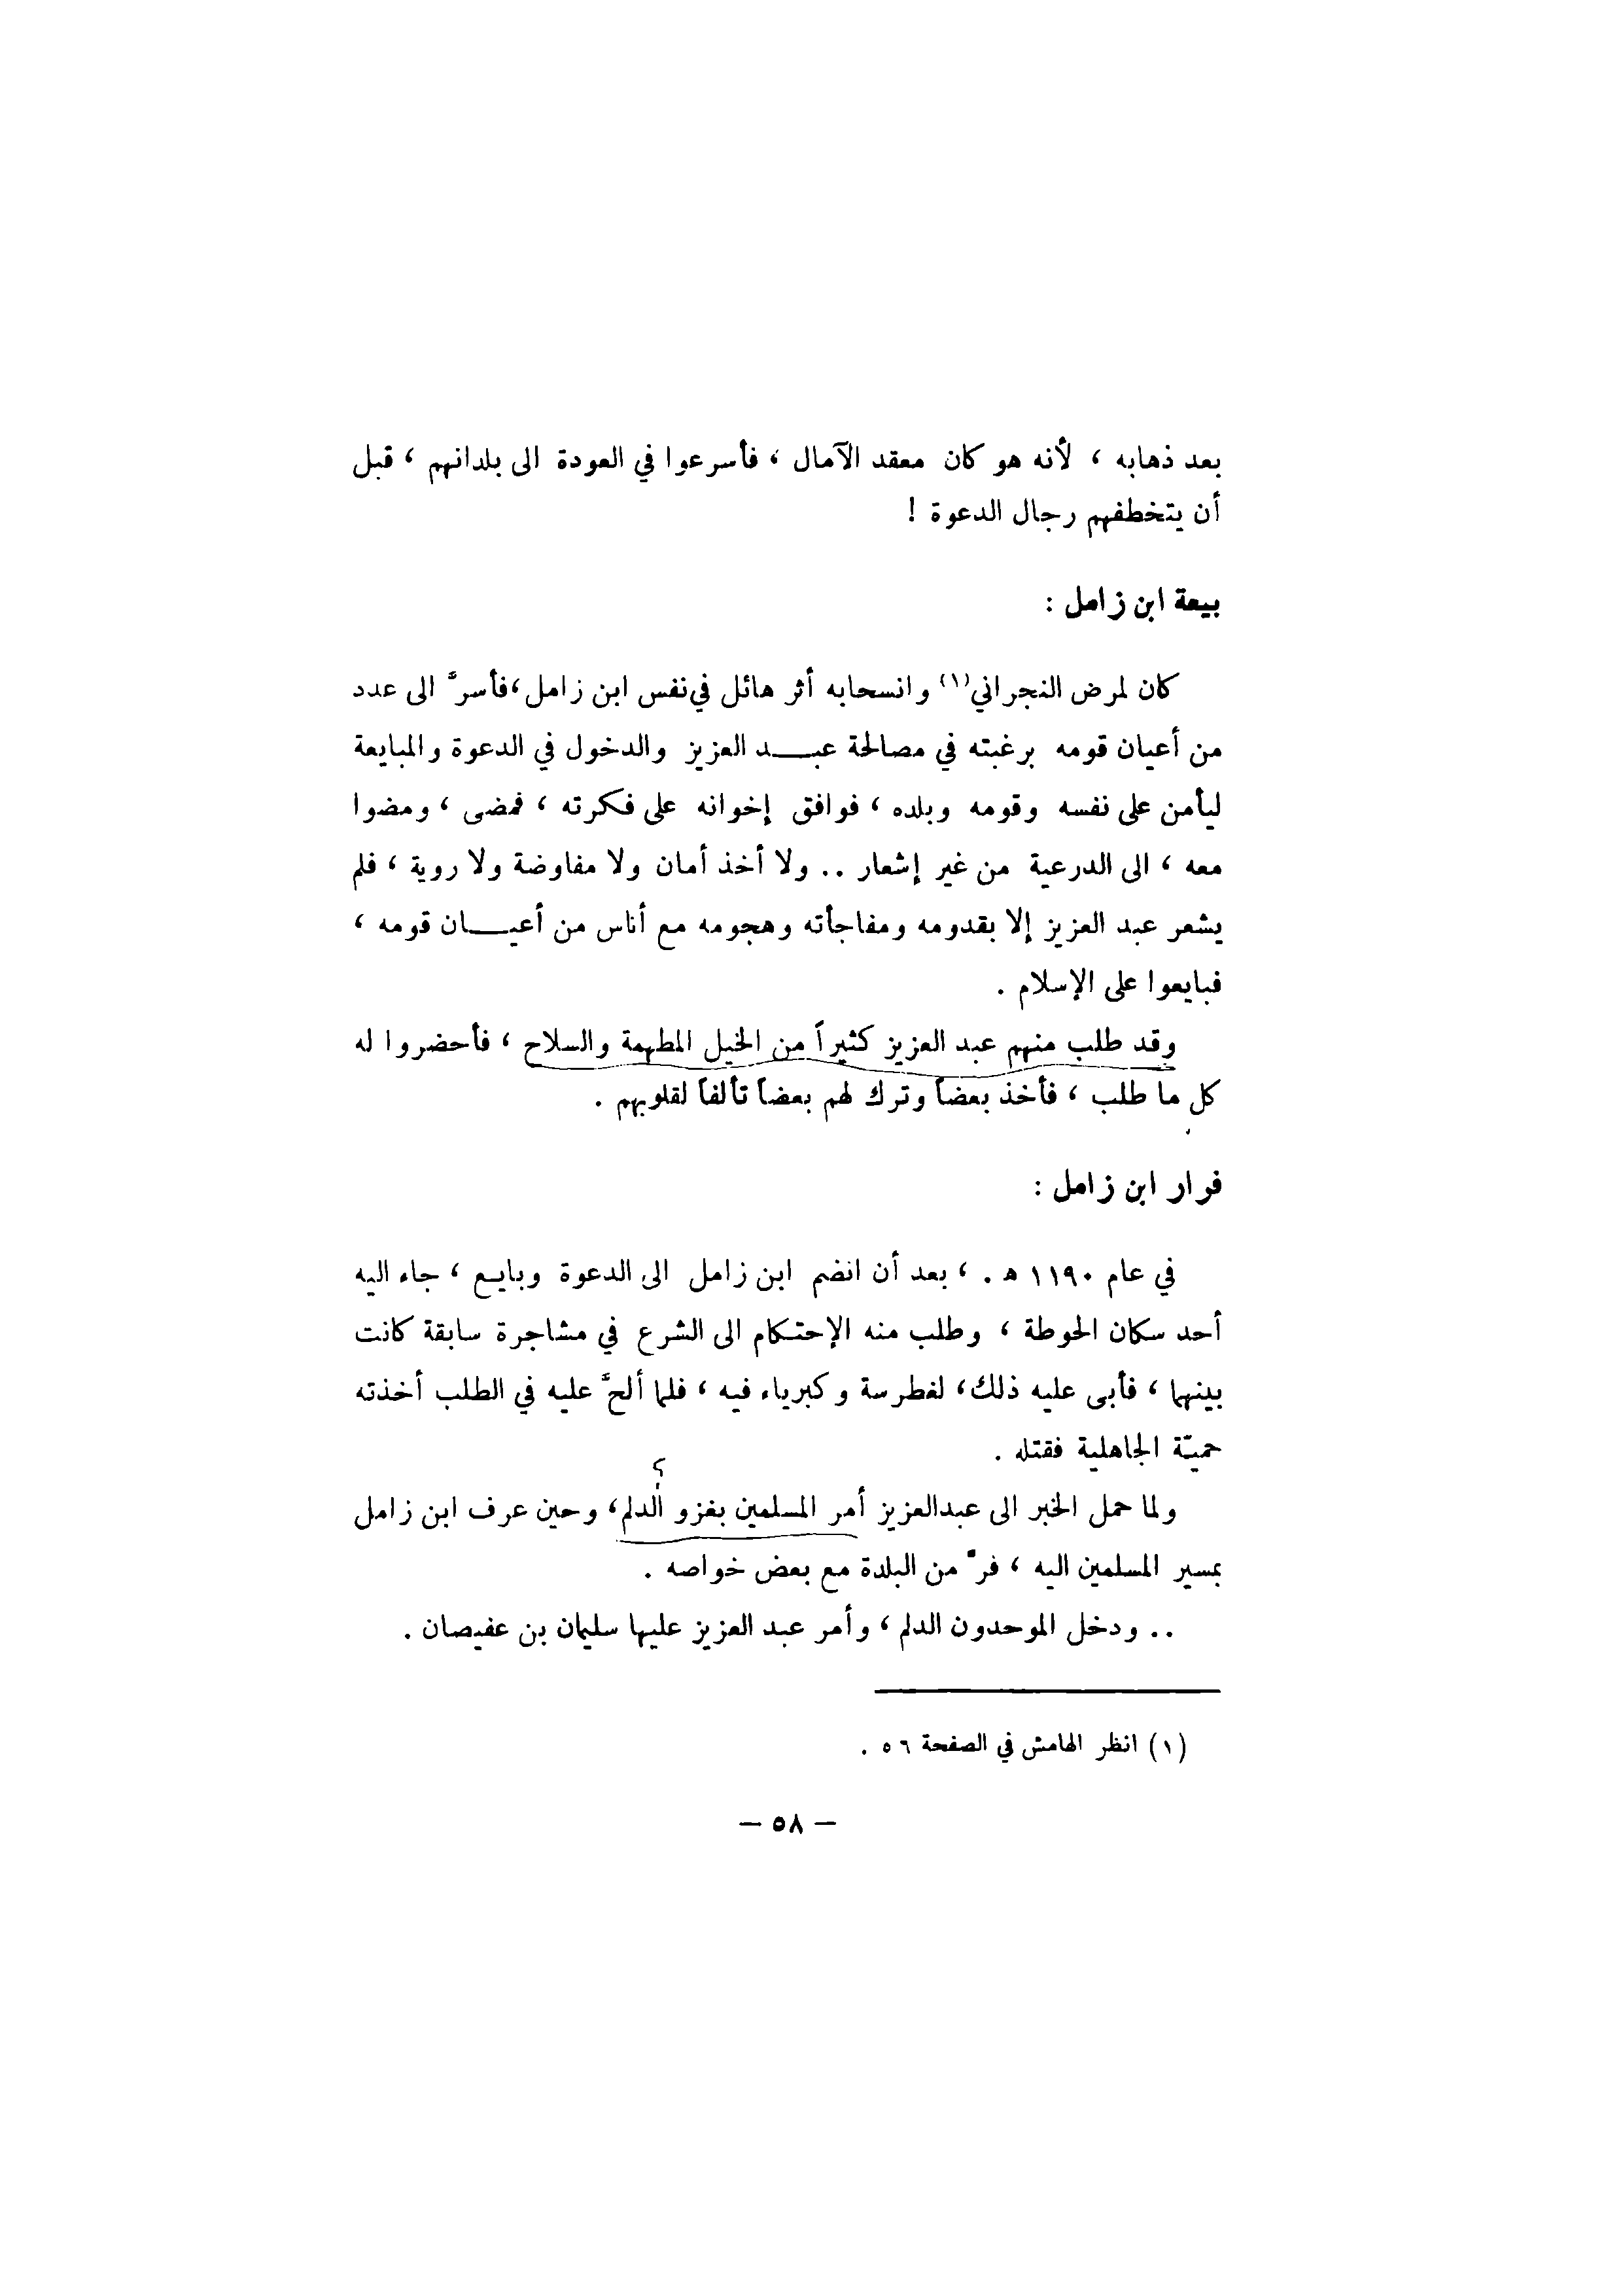 بعد ذهابه ، لأنه هو كان معقد الآمال ، فأسرعوا في العودة الى بلدانهم ، قبل
أن يتخطفهم رجال الدعوة !
بيعة ابن زامل :
كان لمرض النجراني(١) وانسحابه أثر هائل في نفس ابن زامل ، فأسرَّ الى عدد
من أعيان قومه برغبته في مصالحة عبـــد العزيز والدخول في الدعوة والمبايعة
ليأمن على نفسه وقومه وبلده ، فوافق إخوانه على فكرته ، فمضى ، ومضوا
معه ، الى الدرعية من غير إشعار .. ولا أخذ أمان ولا مفاوضة ولا روية ، فلم
يشعر عبد العزيز إلا بقدومه ومفاجأته وهجومه مع أناس من أعيـــان قومه ،
فبايعوا على الإسلام .
وقد طلب منهم عبد العزيز كثيراً من الخيل المطهمة والسلاح ، فأحضروا له
كل ما طلب ، فأخذ بعضاً وترك لهم بعضاً تألفاً لقلوبهم .
فرار ابن زامل :
في عام ١١٩٠ هـ . ، بعد أن انضم ابن زامل الى الدعوة وبايع ، جاء اليه
أحد سكان الحوطة ، وطلب منه الإحتكام الى الشرع في مشاجرة سابقة كانت
بينهما ، فأبى عليه ذلك ، لغطرسة وكبرياء فيه ، فلما ألحَّ عليه في الطلب أخذته
حميّة الجاهلية فقتله .
؟
ولما حمل الخبر الى عبدالعزيز أمر المسلمين بغزو الدلم ، وحين عرف ابن زامل
بمسير المسلمين اليه ، فرَّ من البلدة مع بعض خواصه .
.. ودخل الموحدون الدلم ، وأمر عبد العزيز عليها سليمان بن عفيصان .
(١) انظر الهامش في الصفحة ٥٦ .
— ٥٨ —